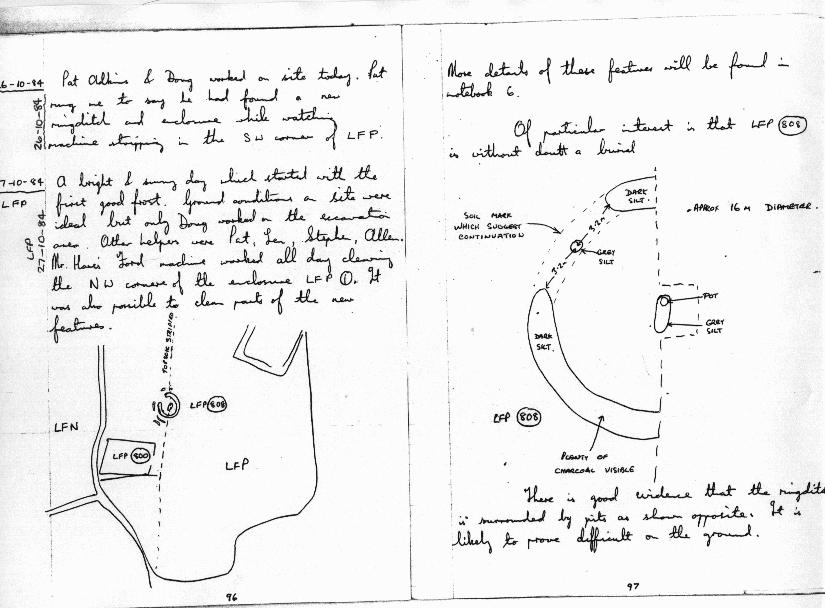 26-10-84
Pat Adkins & Doug worked on site today. Pat
rung me to say he had found a new
ringditch and enclosure while watching
machine stripping in the SW corner of LFP.
26-10-84
27-10-84
LFP
A bright & sunny day which started with the
first good frost. Ground conditions on site were
ideal but only Doug worked on the excavation
area. Other helpers were Pat, Len, Stephen, Allen.
Mr. Ford machine worked all day cleaning
the NW corner of the enclosure LFP ①. It
was also possible to clean parts of the new
features.
LFP
27-10-84
TOPSOIL STRIPPED
LFP 808
LFN
LFP 800
LFP
96
More details of these features will be found in
notebook 6.
Of particular interest is that LFP 808
is without doubt a burial
DARK
SILT.
APROX 16 M DIAMETER.
SOIL MARK
WHICH SUGGEST
CONTINUATION
3.2m
GREY
SILT
3.2m
POT
GREY
SILT
DARK
SILT.
LFP 808
PLENTY OF
CHARCOAL VISIBLE
There is good evidence that the ringditc
is surrounded by pits as shown opposite. It is
likely to prove difficult on the ground.
97